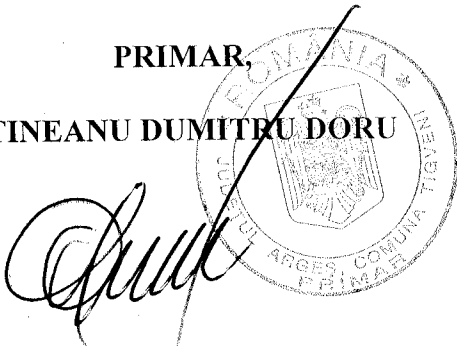 PRIMAR,
TINEANU DUMITRU DORU
ROMÂNIA
JUDEȚUL ARGEȘ COMUNA TIGVENI
PRIMAR